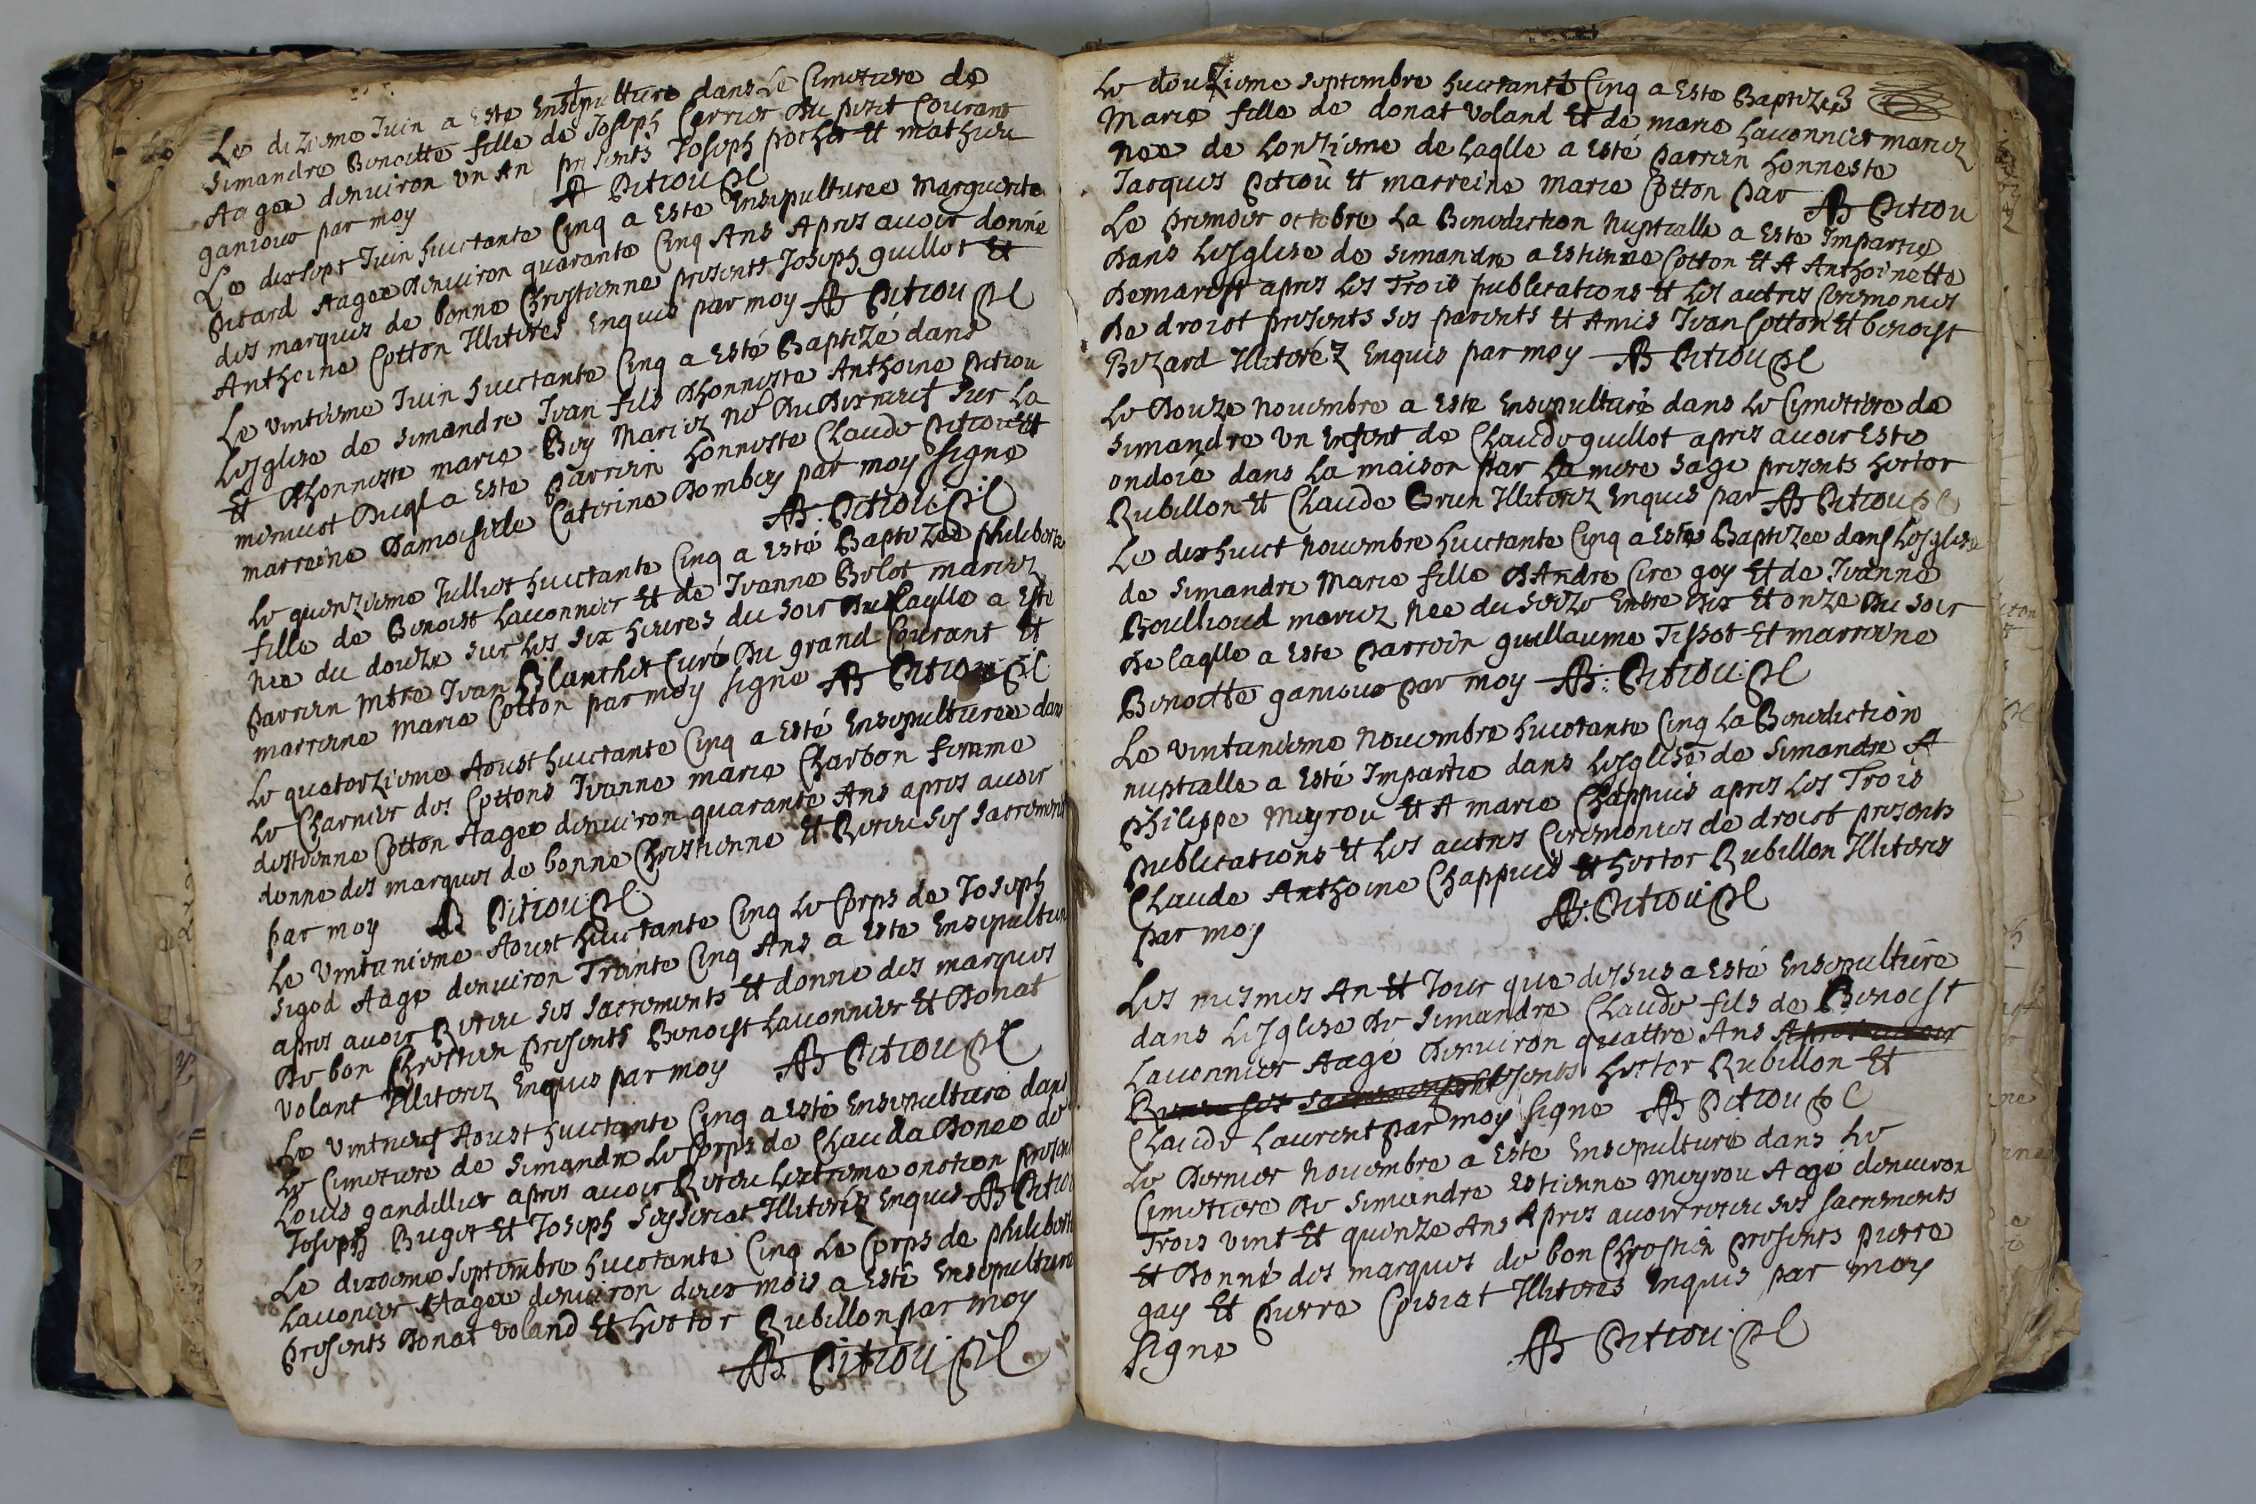 Le dizieme Juin a este Ensepulture dans Le Cimetiere de
Simandre Benoitte fille de Joseph Perrier Du petit Courant
Aagee denuiron vn An presents Joseph pochet Et mathieu
ganioux par moy AB Pitiou
Le dixsept Juin huictante Cinq a Este Ensepulturee Marguerite
Pitard Aagee Denuiron quarante Cinq Ans Apres auoir donné
des marques de bonne Chrestienne presents Joseph guillot Et
Anthoine Cotton Illiterés Enquis par moy AB Pitiou
Le vintieme Juin huictante Cinq a Esté Baptizé dans
Lesglise de Simandre Jean fils Dhonneste Anthoine Pitiou
Et Dhonneste marie Mariez né Du Dixneuf sur La
mienuict Duql a Este Parrein honneste Claude Pitiou Et
marreine Damoiselle Caterine Dombey par moy signe
AB: Pitiou
Le quinzieme Julliet huictante Cinq a Esté Baptizée philiberte
fille de Benoist Lauonnier Et de Jeanne Belot mariez
nee du douze sur les six heures du soir De Laqlle a Este
parrein mtre Jean Blanchet Curé Du grand Courant Et
marreine marie Cotton par moy signe AB Pitiou
Le quatorzieme Aoust huictante Cinq a Esté Ensepulturee dans
Le Charnier des Cottons Jeanne marie Charbon femme
destienne Cotton Aagee denuiron quarante Ans apres auoir
donne des marques de bonne Chrestienne Et Receu ses sacrements
par moy AB Pitiou
Le Vintunieme Aoust huictante Cinq Le Corps de Joseph
Sigod Aage denuiron Trante Cinq Ans a Este Ensepulturé
apres auoir Receu ses sacrements Et donne des marques
De bon Chrestien presents Benoist Lauonnier Et Donat
volant Illiterez Enquis par moy AB Pitiou
Le Vintneuf Aoust huictante Cinq a Esté Ensepulturé dans
Le Cimetiere de Simandre Le Corps de Clauda Donee de
Louis gandillier apres auoir Receu Lextreme onction presents
Joseph Buget Et Joseph Illiterés Enquis AB Pitiou
Le dixieme septembre huictante Cinq Le Corps de philiberte
Lauonier Aagee denuiron deux mois a Esté Ensepulturé
Presents Donat voland Et hector Rubillon par moy
AB. Pitiou
Le douzieme septembre huictante Cinq a Este Baptizée
Marie fille de donat voland Et de marie Lauonnier mariez
nee de Lonzieme de Laqlle a Este parrein honneste
Jacques Pitiou Et marreine marie Cotton Par AB Pitiou
Le premier octobre La Benediction Nuptialle a Este Impartie
Dans Lesglise de Simandre a Estienne Cotton Et A Anthoinette
Demarest apres les Trois publications Et Les autres Ceremonies
De droict presents ses parents Et Amis Jean Cotton Et benoist
Bizard Illiteréz Enquis par moy AB Pitiou
Le Douze nouembre a Este Ensepulturé dans Le Cimetiere de
Simandre Vn Enfent de Claude guillot apres auoir Este
ondoié dans La maison par La mere Sage presents hector
Rubillon Et Claude Brun Illiterez Enquis par AB Pitiou
Le dixhuict nouembre huictante Cinq a Este Baptizee dans Lesglise
de Simandre Marie fille DAndre Cire goy Et de Jeanne
Boullioud mariez nee du seize Entre Dix Et onze Du Soir
De laqlle a Este parrein guillaume Tissot Et marreine
Benoitte ganioux par moy AB: Pitiou:
Le vintunieme nouembre huictante Cinq La Benediction
nuptialle a Esté Impartie dans Lesglise de Simandre A
Philippe Meyrou Et A marie Chappuis apres Les Trois
Publications Et Les autres Ceremonies de droict presents
Claude Anthoine Chappuis Et hector Rubillon Illiteres
par moy AB: Pitiou
Les mesmes An Et Jour que dessus a Esté Ensepulturé
dans Lesglise De Simandre Claude fils de Benoist
Lauonnier Aagé Denuiron quattre Ans Apres auoir
Receu ses sacrements presents hector Rubillon Et
Claude Laurent par moy signe AB Pitiou
Le Dernier nouembre a Este Ensepulturé dans Le
Cimetiere De Simandre Estienne Meyrou Aagé denuiron
Trois vint Et quinze Ans Apres auoir receu ses sacrements
Et Donné des marques de bon Chrestien presents pierre
gay Et Pierre Illiteres Enquis par moy
signe AB Pitiou